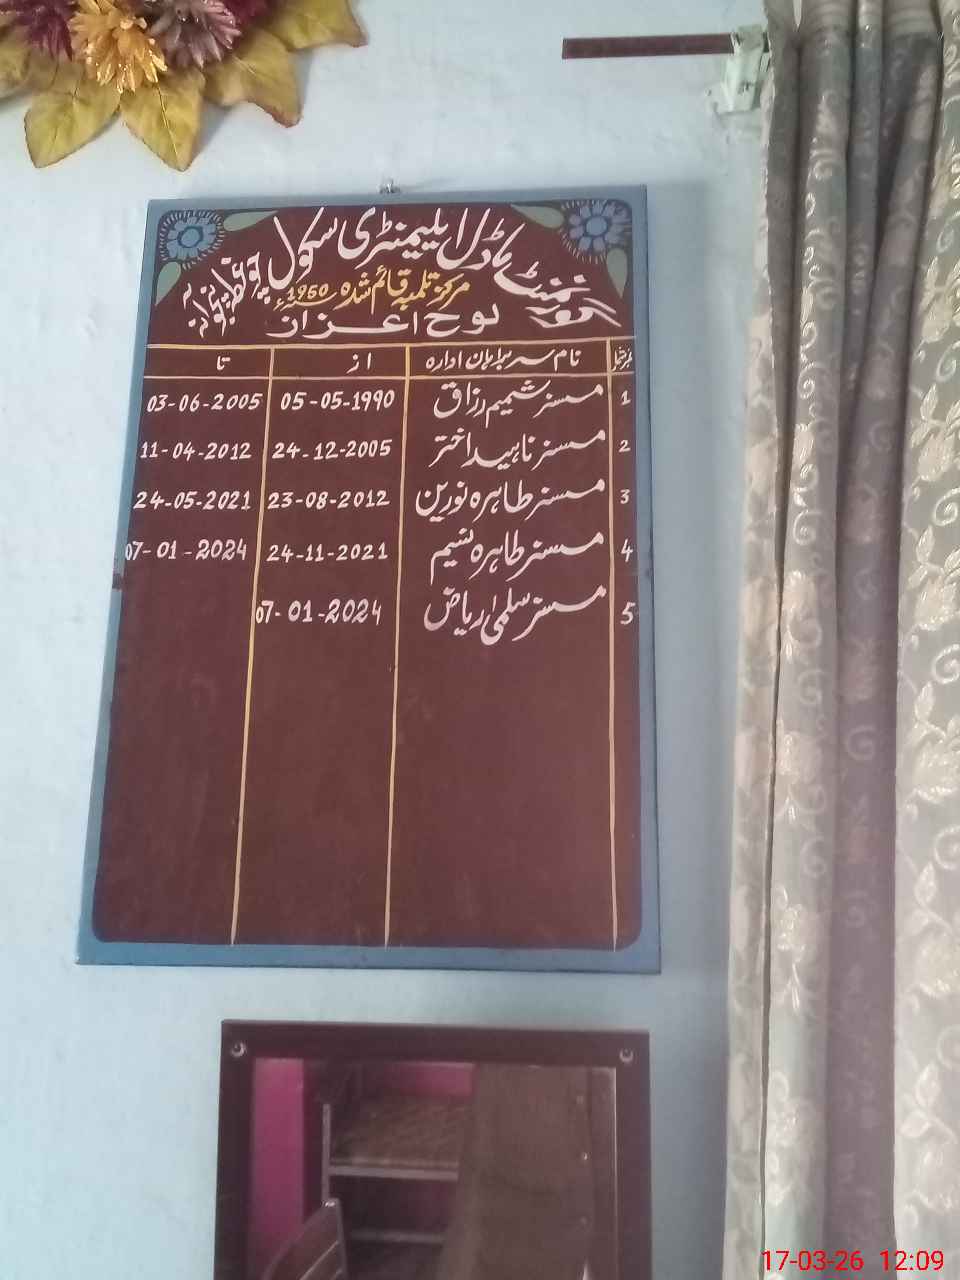 گورنمنٹ ماڈل ایلیمنٹری سکول
مرکز تلمبہ قائم شدہ 1950ء
لوح اعزاز
نمبر شمار نام سربراہان ادارہ از تا
1 مسز شمیم رزاق 05-05-1990 03-06-2005
2 مسز ناہید اختر 24-12-2005 11-04-2012
3 مسز طاہرہ نورین 23-08-2012 24-05-2021
4 مسز طاہرہ نسیم 24-11-2021 07-01-2024
5 مسز سلمیٰ ریاض 07-01-2024
17-03-26 12:09